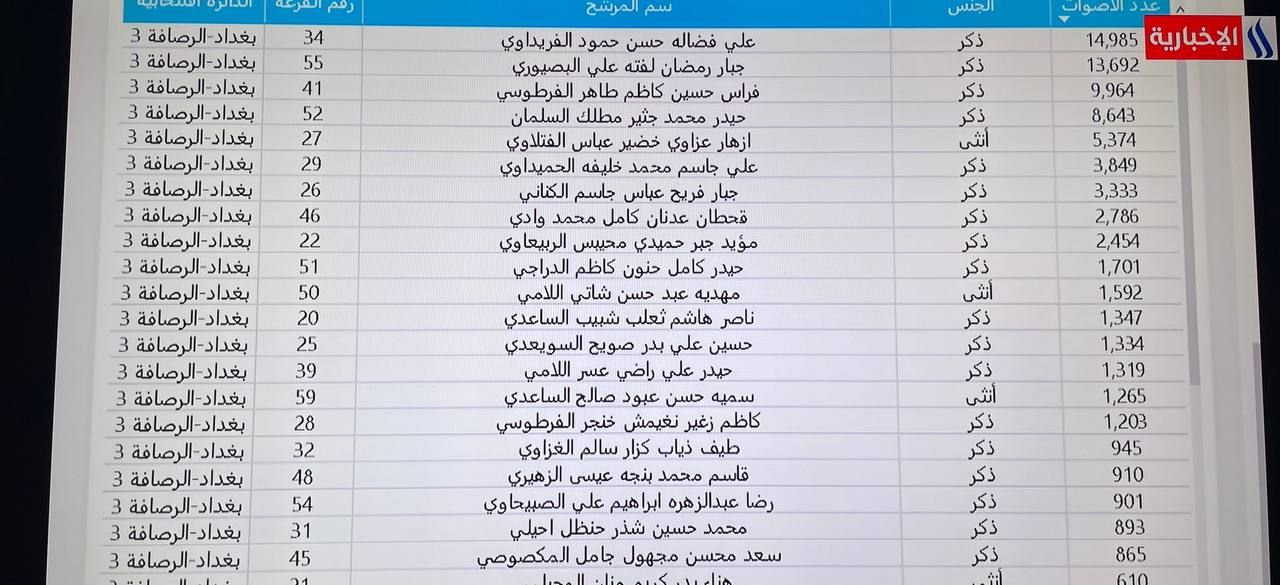 عدد الأصوات الجنس سم المرشح رقم القرعة الدائرة الانتخابية
الإخبارية
14,985 ذكر علي فضاله حسن حمود الفريداوي 34 بغداد-الرصافة 3
13,692 ذكر جبار رمضان لفته علي البصيوري 55 بغداد-الرصافة 3
9,964 ذكر فراس حسين كاظم طاهر الفرطوسي 41 بغداد-الرصافة 3
8,643 ذكر حيدر محمد جثير مطلك السلمان 52 بغداد-الرصافة 3
5,374 أنثى ازهار عزاوي خضير عباس الفتلاوي 27 بغداد-الرصافة 3
3,849 ذكر علي جاسم محمد خليفه الحميداوي 29 بغداد-الرصافة 3
3,333 ذكر جبار فريح عباس جاسم الكناني 26 بغداد-الرصافة 3
2,786 ذكر قحطان عدنان كامل محمد وادي 46 بغداد-الرصافة 3
2,454 ذكر مؤيد جبر حميدي محيبس الربيعاوي 22 بغداد-الرصافة 3
1,701 ذكر حيدر كامل حنون كاظم الدراجي 51 بغداد-الرصافة 3
1,592 أنثى مهديه عبد حسن شاتي اللامي 50 بغداد-الرصافة 3
1,347 ذكر ناصر هاشم ثعلب شبيب الساعدي 20 بغداد-الرصافة 3
1,334 ذكر حسين علي بدر صويح السويعدي 25 بغداد-الرصافة 3
1,319 ذكر حيدر علي راضي عسر اللامي 39 بغداد-الرصافة 3
1,265 أنثى سميه حسن عبود صالح الساعدي 59 بغداد-الرصافة 3
1,203 ذكر كاظم زغير نغيمش خنجر الفرطوسي 28 بغداد-الرصافة 3
945 ذكر طيف ذياب كزار سالم الغزاوي 32 بغداد-الرصافة 3
910 ذكر قاسم محمد بنجه عيسى الزهيري 48 بغداد-الرصافة 3
901 ذكر رضا عبدالزهره ابراهيم علي الصبيحاوي 54 بغداد-الرصافة 3
893 ذكر محمد حسين شذر حنظل احيلي 31 بغداد-الرصافة 3
865 ذكر سعد محسن مجهول جامل المكصوصي 45 بغداد-الرصافة 3
610 أنثى هناء بدر كريم 21 بغداد-الرصافة 3